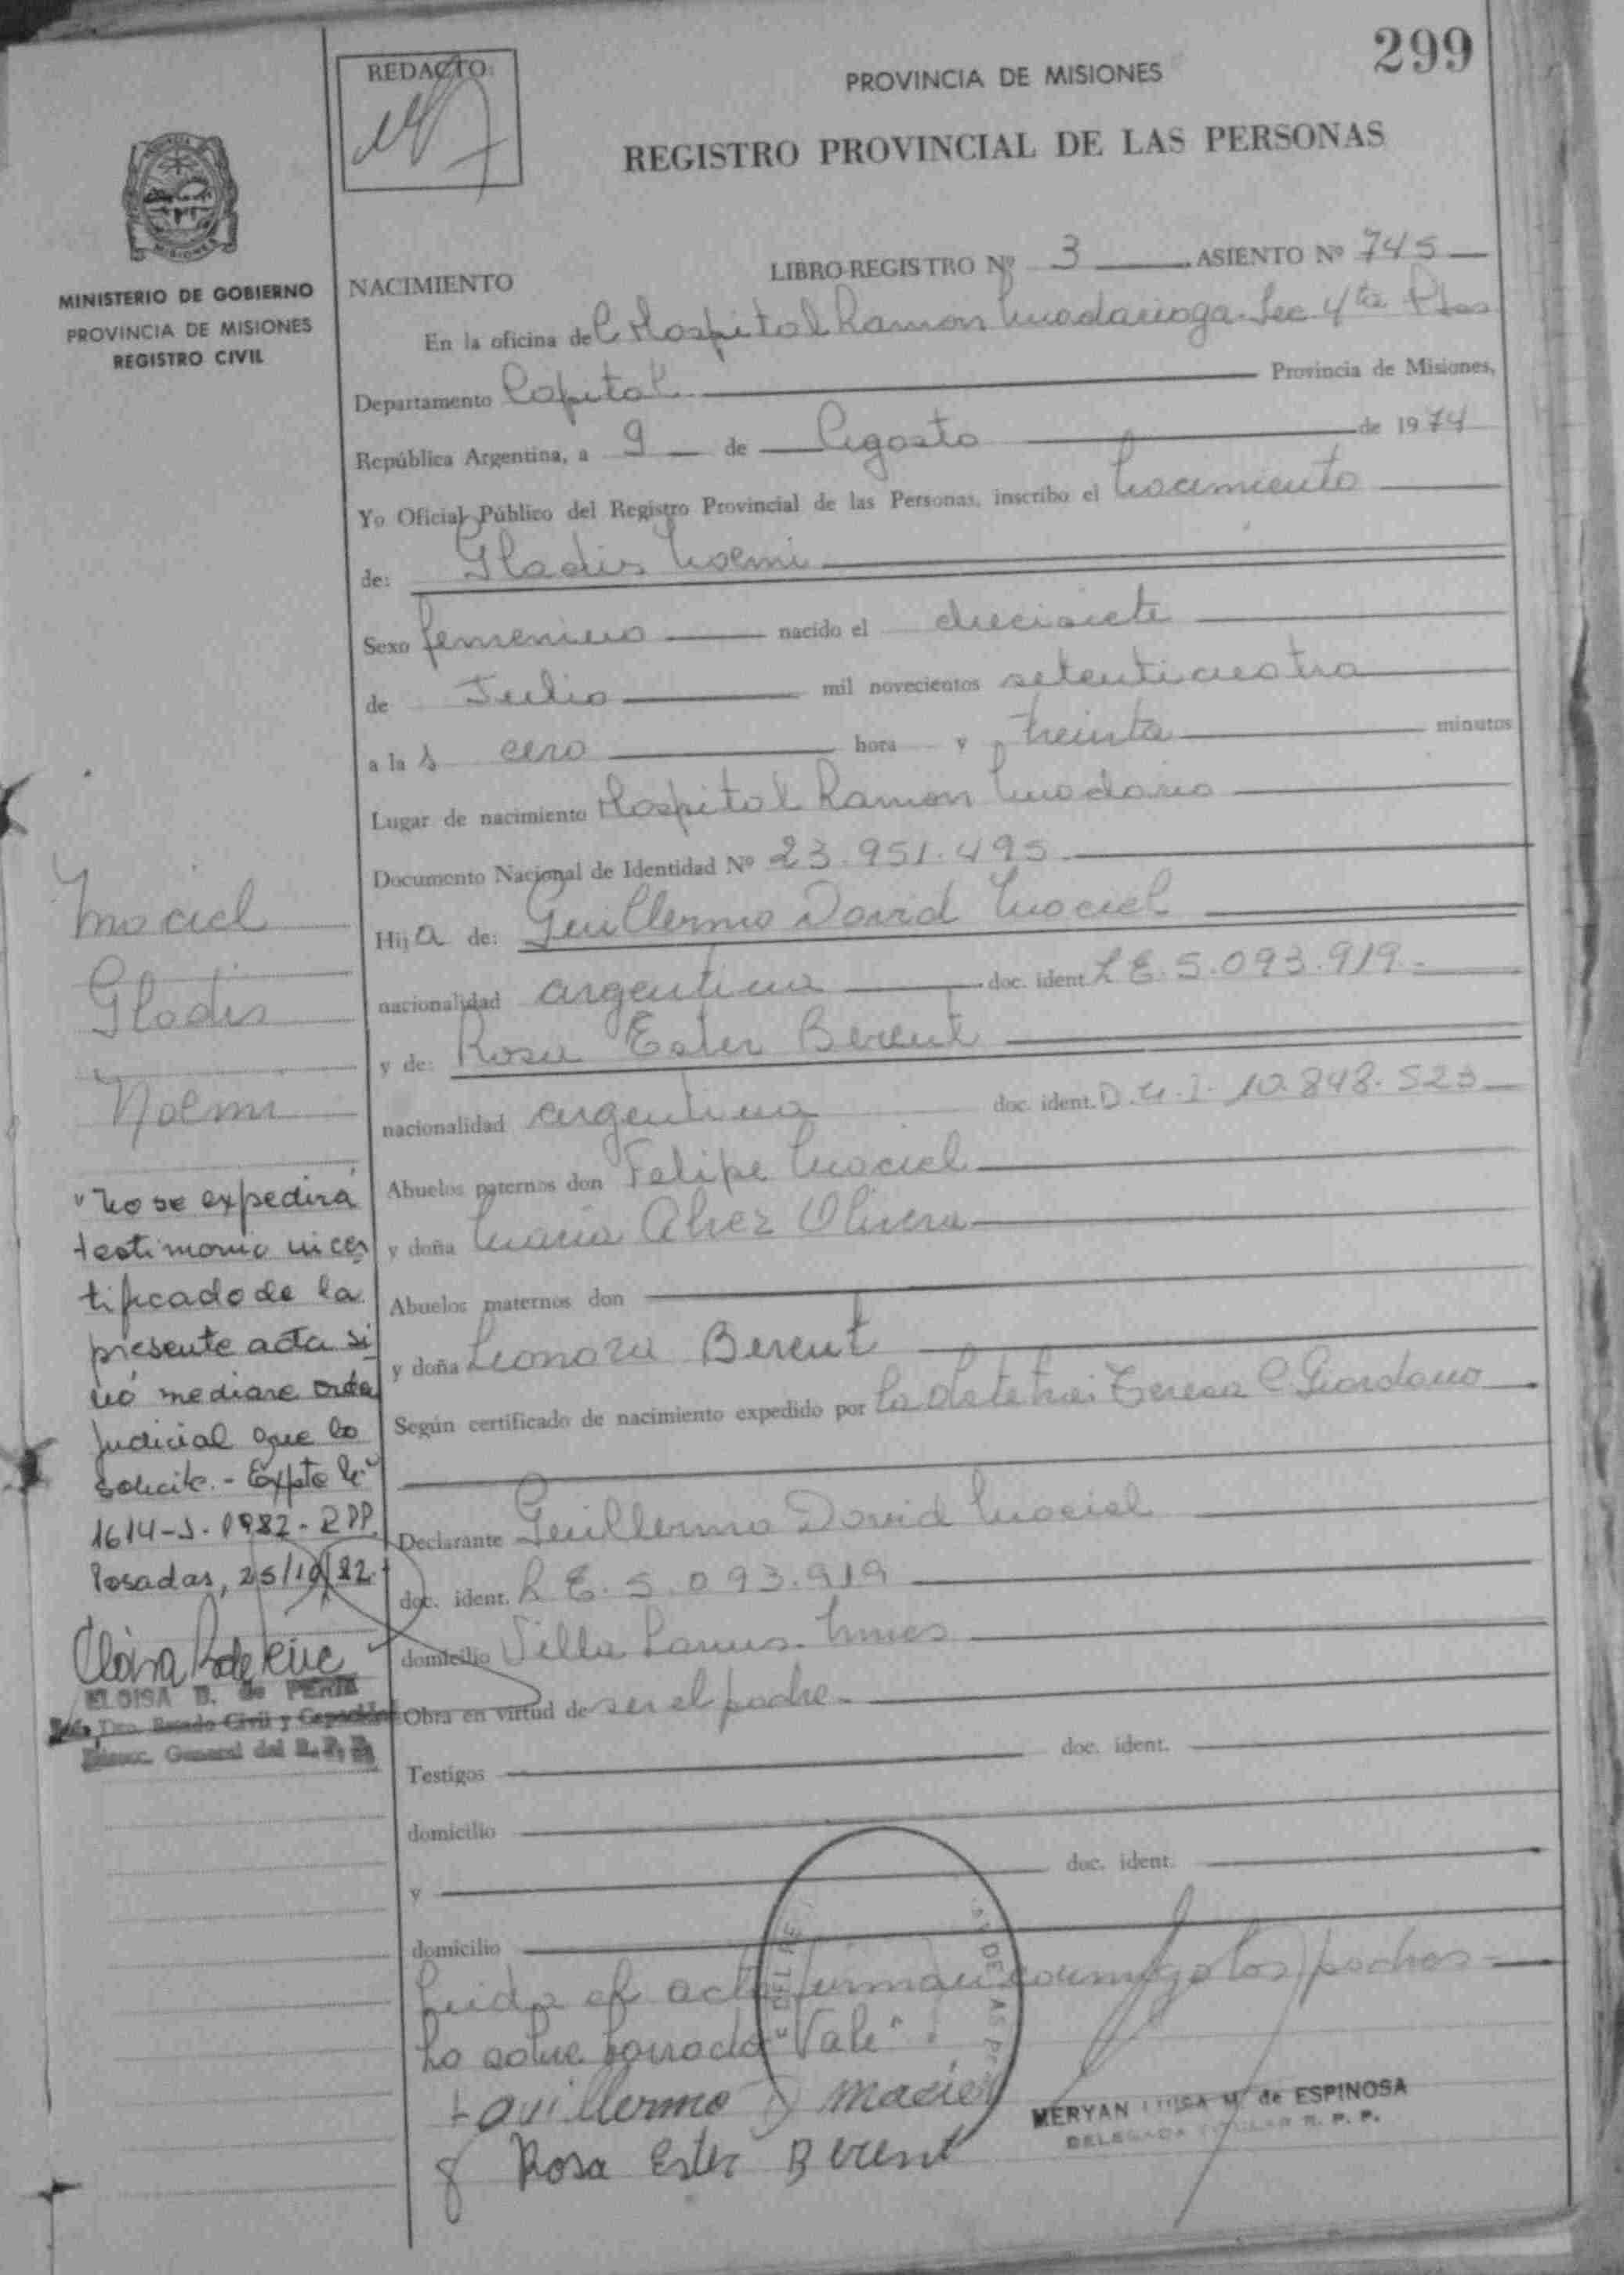 299
REDACTO:
PROVINCIA DE MISIONES
REGISTRO PROVINCIAL DE LAS PERSONAS
MISIONES
MINISTERIO DE GOBIERNO
PROVINCIA DE MISIONES
REGISTRO CIVIL
NACIMIENTO
LIBRO-REGISTRO Nº 3 ASIENTO Nº 745
En la oficina de Hospital Ramon Madariaga. Sec 4ta Pdas
Departamento Capital Provincia de Misiones,
República Argentina, a 9 de Agosto de 1974
Yo Oficial Público del Registro Provincial de las Personas, inscribo el Nacimiento
de: Gladis Noemi
Sexo femenino nacido el diecisiete
de Julio mil novecientos setenticuatro
a la s cero hora y treinta minutos
Lugar de nacimiento Hospital Ramon Madaria
Documento Nacional de Identidad Nº 23.951.495
Hija de: Guillermo David Maciel
nacionalidad argentina doc. ident L E. 5.093.919.-
y de: Rosa Ester Berent
nacionalidad argentina doc. ident. D.N.I- 10.848.523
Abuelos paternos don Felipe Maciel
y doña Maria Alvez Olivera
Abuelos maternos don
y doña Leonora Berent
Según certificado de nacimiento expedido por la obstetra: Teresa C. Giordano
Declarante Guillermo David Maciel
doc. ident. L E. 5.093.919
domicilio Villa Lanus. Mnes
Obra en virtud de ser el padre.-
Testigos doc. ident.
domicilio
y doc. ident.
domicilio
Leida el acta firman conmigo los padres
Lo sobre borrado "Vale".
Guillermo D Maciel
Rosa Ester Berent
MERYAN LUISA M. de ESPINOSA
DELEGADA TITULAR R. P. P.
Maciel
Gladis
Noemi
"No se expedirá
testimonio ni cer
tificado de la
presente acta si
nó mediare orden
judicial que lo
solicite.- Expte Nº
1614-J-1982- RPP.
Posadas, 25/10/82.
ELOISA B. de
Dto. Estado Civil y Capacidad
Direcc. General del R. P. P.